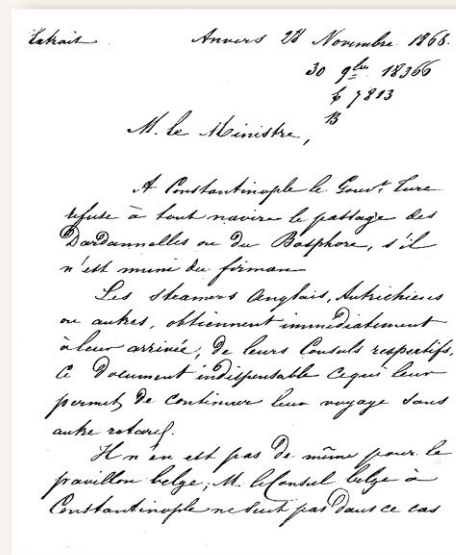 Extrait
Anvers 28 Novembre 1868.
30 9bre 18366
7813
B
M. le Ministre,
A Constantinople le Gouvt. Turc
refuse à tout navire le passage des
Dardannelles ou du Bosphore, s'il
n'est muni du firman
Les steamers Anglais, Autrichiens
ou autres, obtiennent immédiatement
à leur arrivée, de leurs Consuls respectifs,
ce Document indispensable ce qui leur
permet de continuer leur voyage sans
autre retard.
Il n'en est pas de même pour le
pavillon belge; M. le Consul belge à
Constantinople ne peut pas dans ce cas